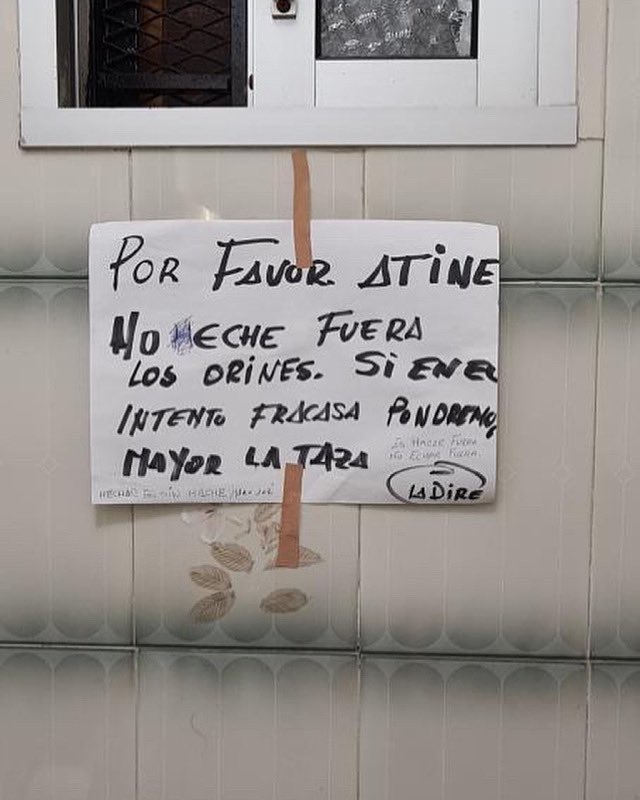 POR FAVOR. ATINE
NO ECHE FUERA
LOS ORINES. SI EN EL
INTENTO FRACASA PONDREMOS
MAYOR LA TAZA
ES HACER FUERA
NO ECHAR FUERA.
LA DIRE
HECHAR